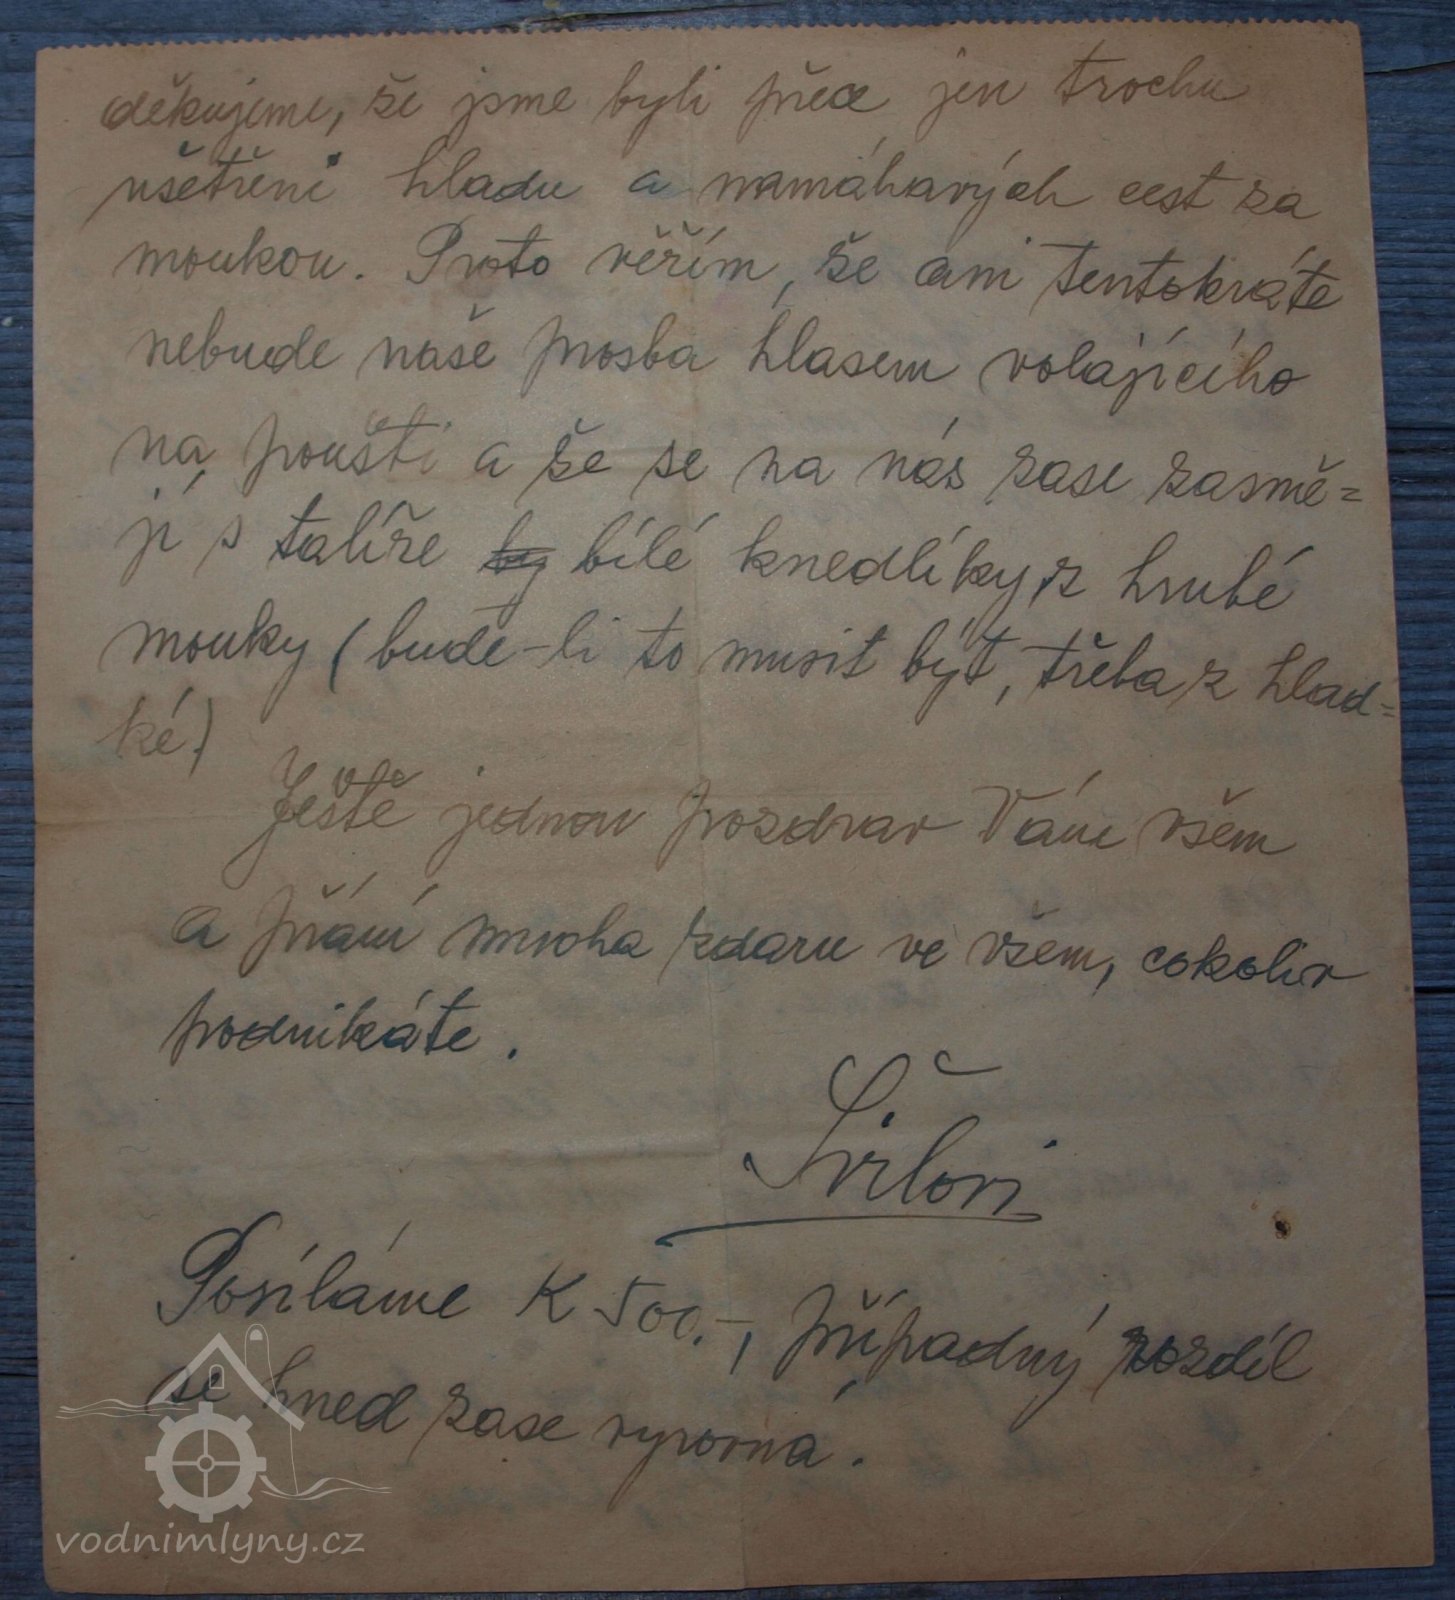 děkujeme, že jsme byli přece jen trochu
ušetřeni hladu a namáhavých cest za
moukou. Proto věřím, že ani tentokráte
nebude naše prosba hlasem volajícího
na poušti a že se na nás zase zasmě=
jí s talíře by bílé knedlíky z hrubé
mouky (bude-li to musit být, třeba z hlad=
ké.)
Ještě jednou pozdrav Vám všem
a přání mnoha zdaru ve všem, cokoliv
podnikáte.
Posíláme K 500.-, případný rozdíl
se hned zase vyrovná.
vodnimlyny.cz